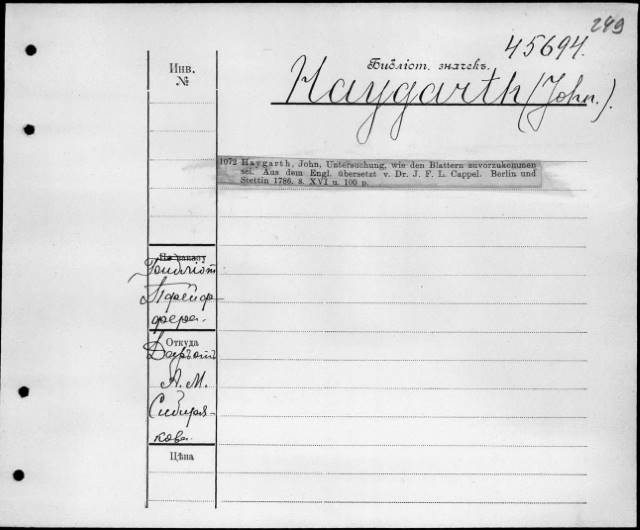 249
45694.
Инв.
№
Библіот. значекъ.
Haygarth (John.).
1072 Haygarth, John, Untersuchung, wie den Blattern zuvorzukommen
sei. Aus dem Engl. übersetzt v. Dr. J. F. L. Cappel. Berlin und
Stettin 1786. 8. XVI u. 100 p.
По заказу
Откуда
Даръ отъ
А. М.
Сибиря-
кова.
Цѣна